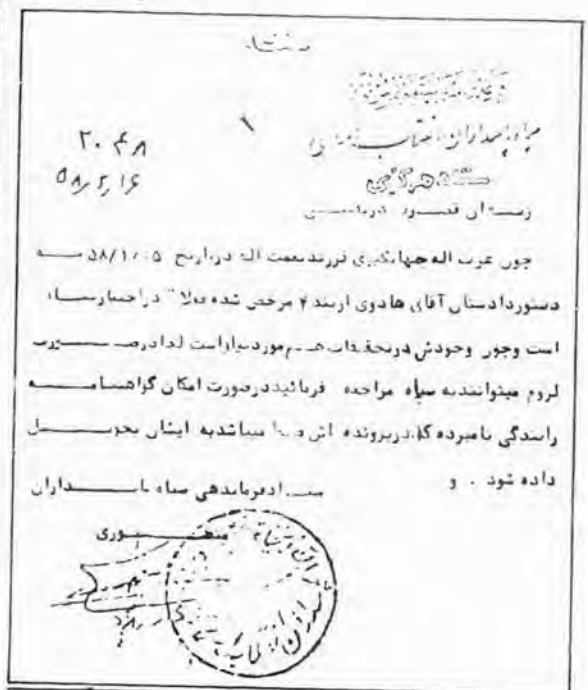 سپاه پاسداران انقلاب اسلامی
۲۰۴۸
ستاد مرکزی
۵۸/۲/۱۶
زندان قصر
چون عزت اله جهانگیری فرزند نعمت اله در تاریخ ۵۸/۱/۰۵ به
دستور دادستان آقای هادوی از بند ۲ مرخص شده فعلا" در اختیار سپاه
است وچون وجودش در تحقیقات مورد نیاز است لذا در صورت
لزوم میتوانند به سپاه مراجعه فرمائید در صورت امکان گواهینامه
رانندگی نامبرده که در پرونده اش میباشد به ایشان تحویل
داده شود . و
ستاد فرماندهی سپاه پاسداران